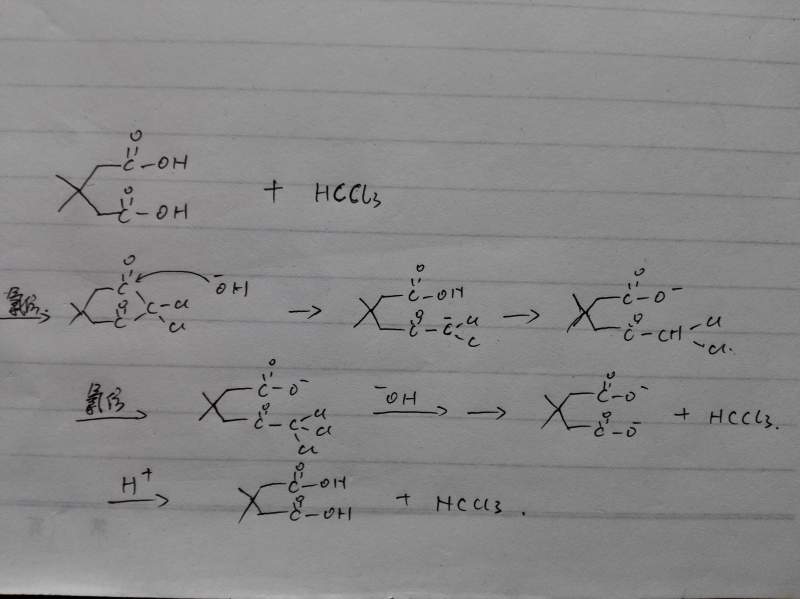 O O
C-OH C-OH + HCCl3
氯仿 → O C O C C Cl Cl ⁻OH → O C-OH O C-C̄ Cl C → O C-O⁻ O C-CH Cl Cl.
氯仿 → O C-O⁻ O C-C Cl Cl Cl ⁻OH → → O C-O⁻ O C-O⁻ + HCCl3.
H⁺ → O C-OH O C-OH + HCCl3.